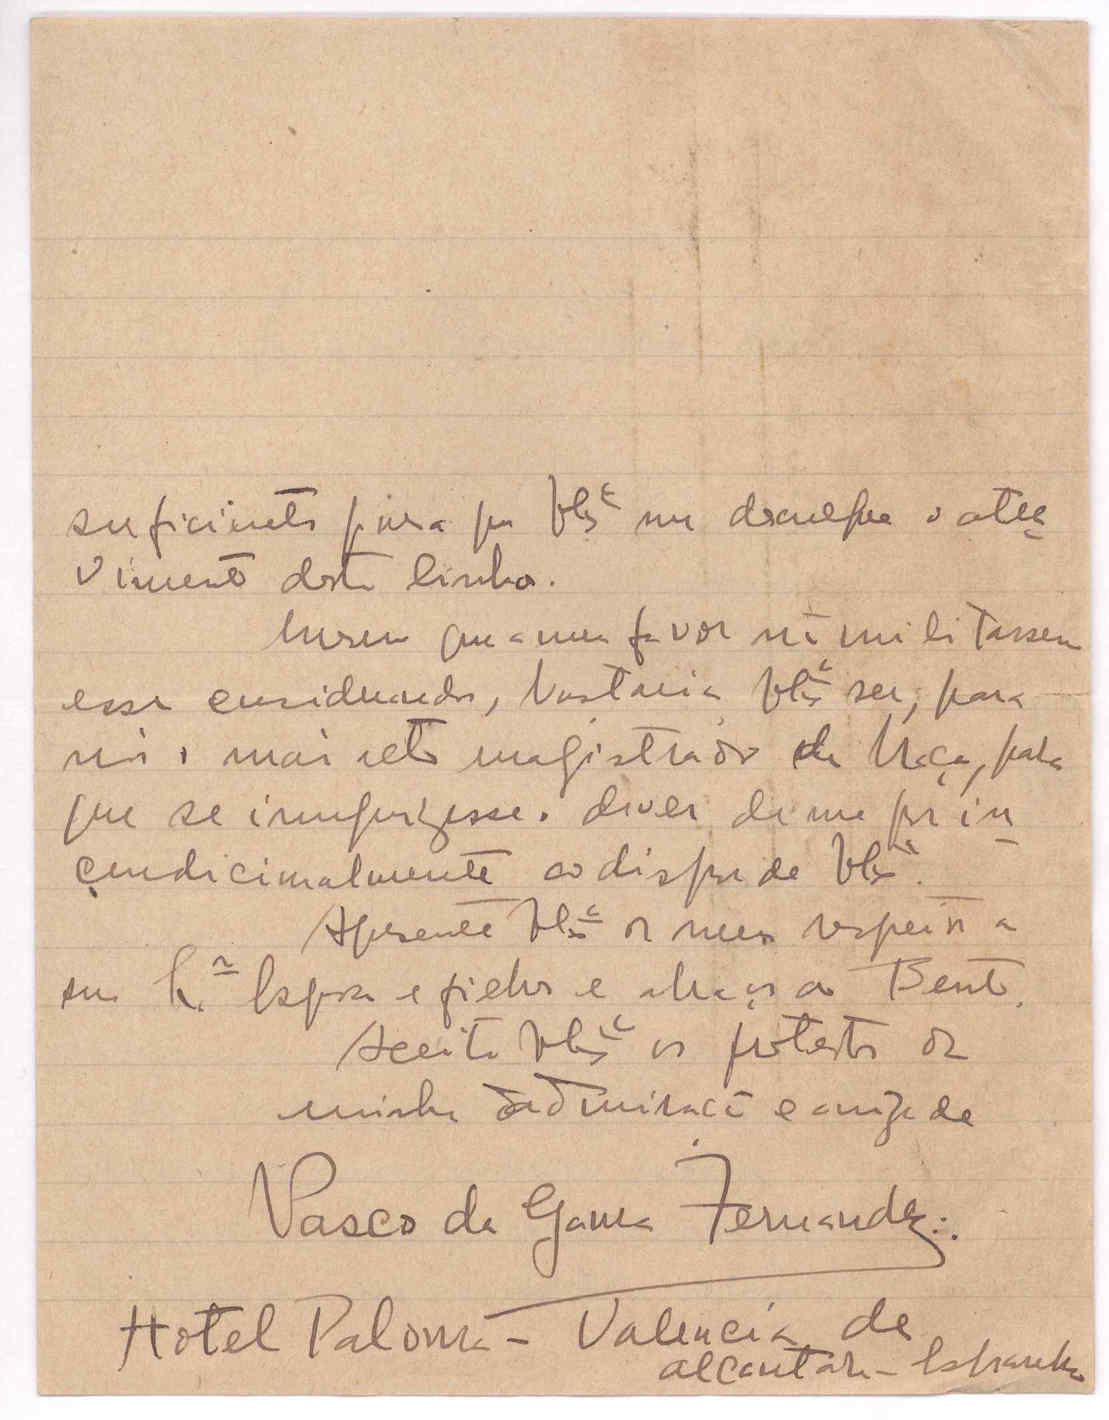 suficiente para que V. Ex.ª me desculpe o atre-
vimento destas linhas.
Mesmo que a meu favor não militassem
esses considerandos, bastaria V. Ex.ª ser, para
mim o mais alto magistrado da Nação, para
que se impuzesse o dever de me pôr in-
condicionalmente ao dispor de V. Ex.ª.
Apresente V. Ex.ª os meus respeitos a
sua Ex.ª Esposa e filhos e abraços ao Bento.
Aceite V. Ex.ª os protestos de
minha admiração e amizade
Vasco da Gama Fernandes
Hotel Paloma - Valencia de
Alcantara - Espanha